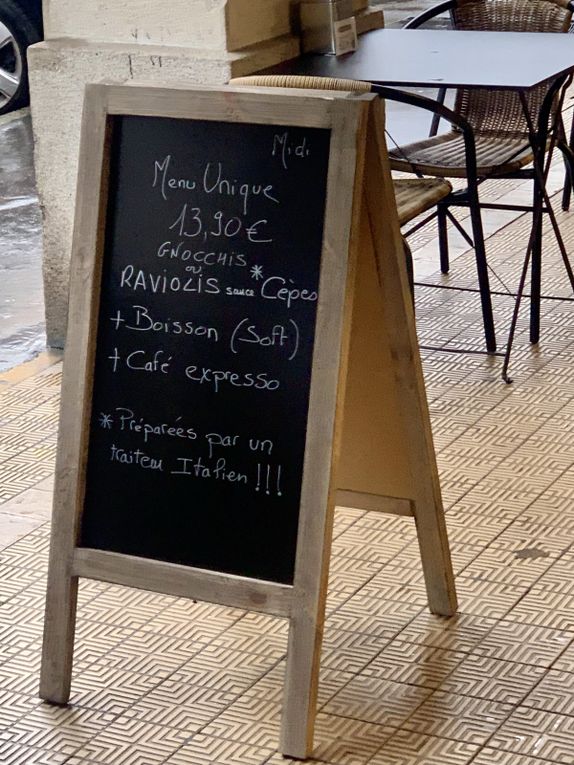 Midi
Menu Unique
13,90 €
GNOCCHIS
ou
RAVIOLIS sauce * Cèpes
+ Boisson (Soft)
+ Café expresso
* Préparées par un
traiteur Italien !!!